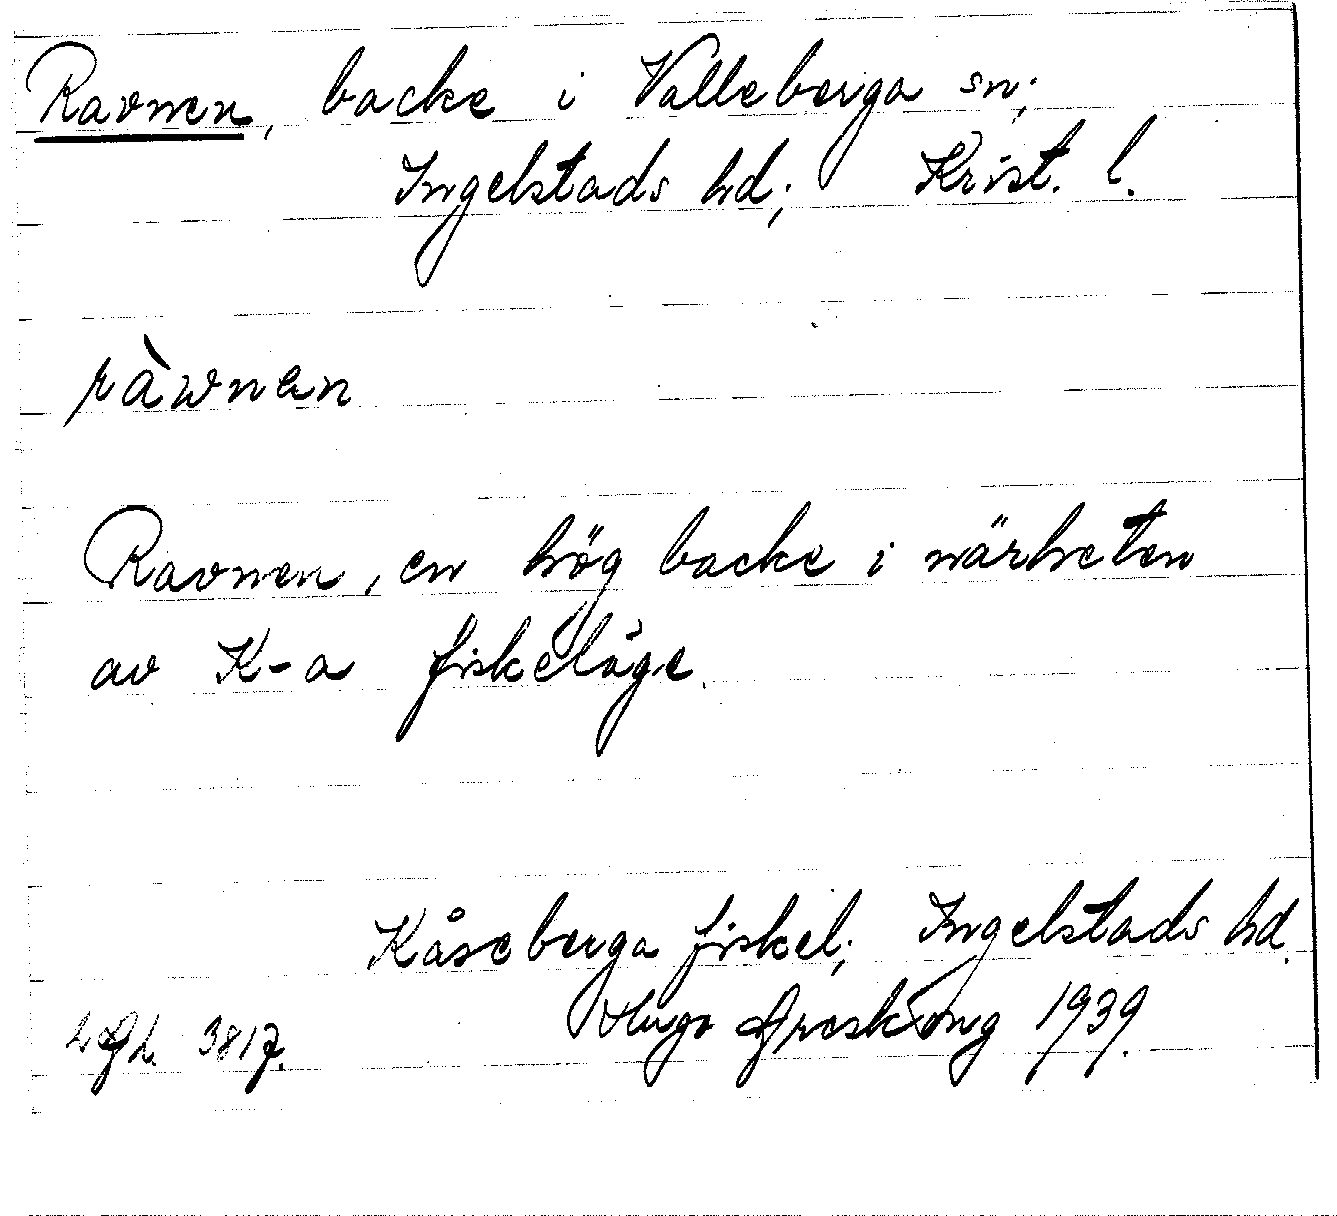 Ravnen, backe i Valleberga sn;
Ingelstads hd; Krist. l.
ràwnen
Ravnen, en hög backe i närheten
av K-a fiskeläge.
Kåseberga fiskel; Ingelstads hd.
3817. Hugo Areskoug 1939.